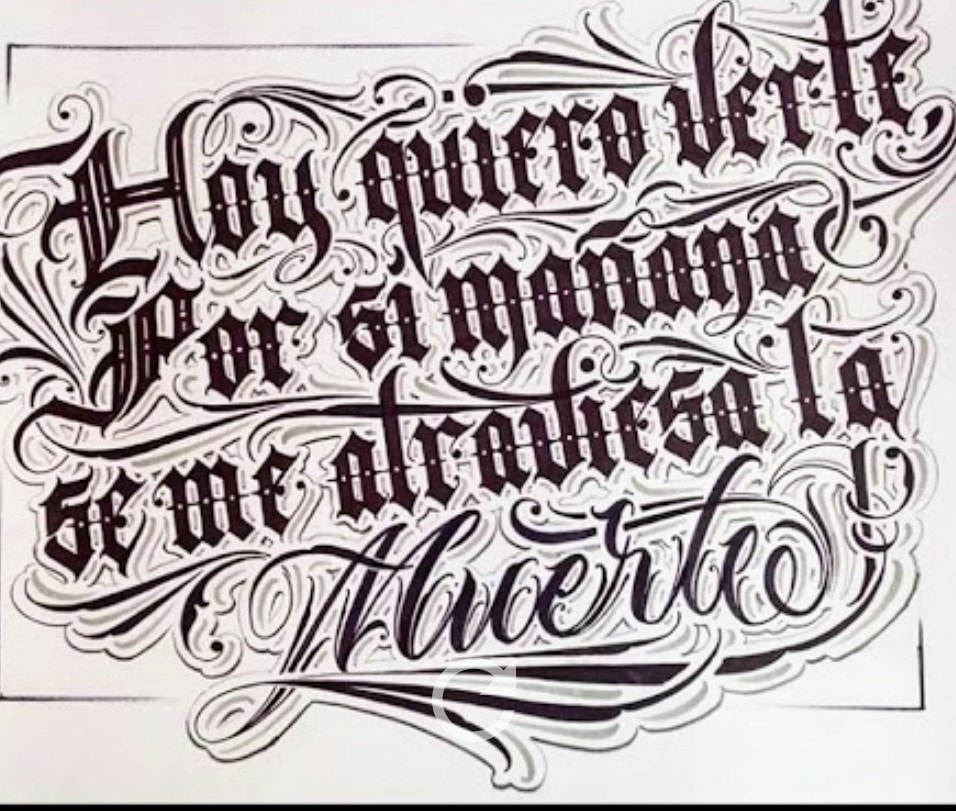 Hoy quiero verte
Por si mañana
se me atraviesa la
Muerte